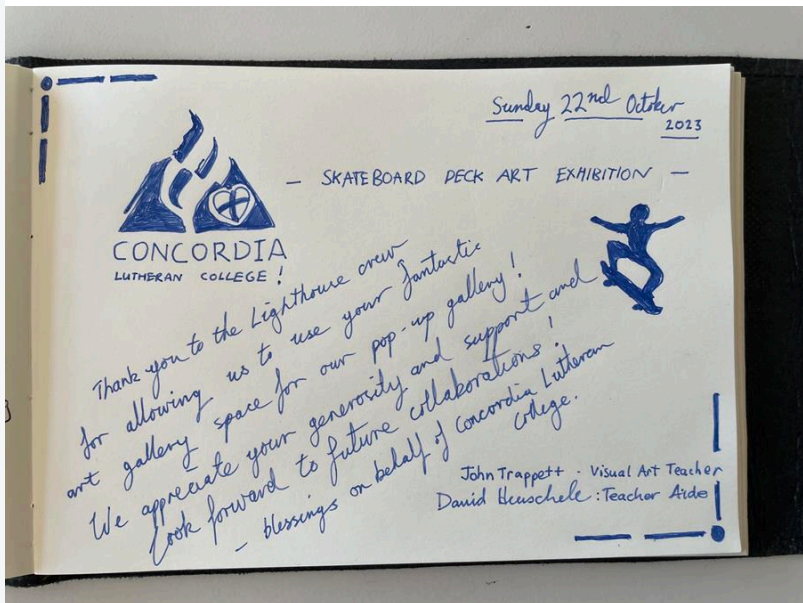 Sunday 22nd October
2023
- SKATEBOARD DECK ART EXHIBITION -
CONCORDIA
LUTHERAN COLLEGE!
Thank you to the Lighthouse crew
for allowing us to use your fantastic
art gallery space for our pop-up gallery!
We appreciate your generosity and support and
look forward to future collaborations!
- blessings on behalf of Concordia Lutheran
college.
John Trappett - Visual Art Teacher
David Heuschele: Teacher Aide